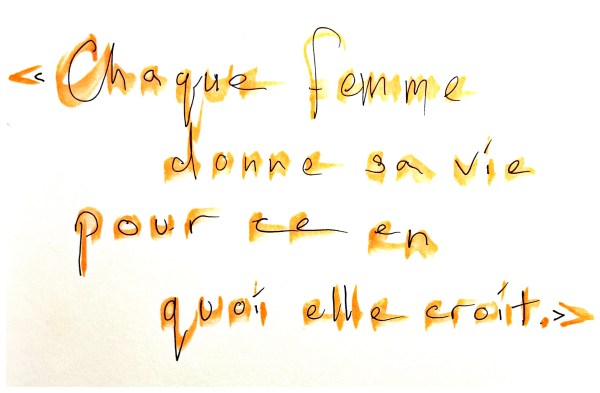 « Chaque femme
donne sa vie
pour ce en
quoi elle croit. »